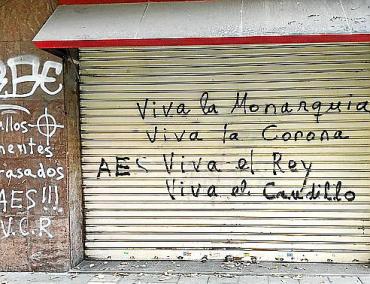 allos
mentes
rasados
AES!!!
V.C.R
Viva la Monarquia
Viva la Corona
AES Viva el Rey
Viva el Caudillo